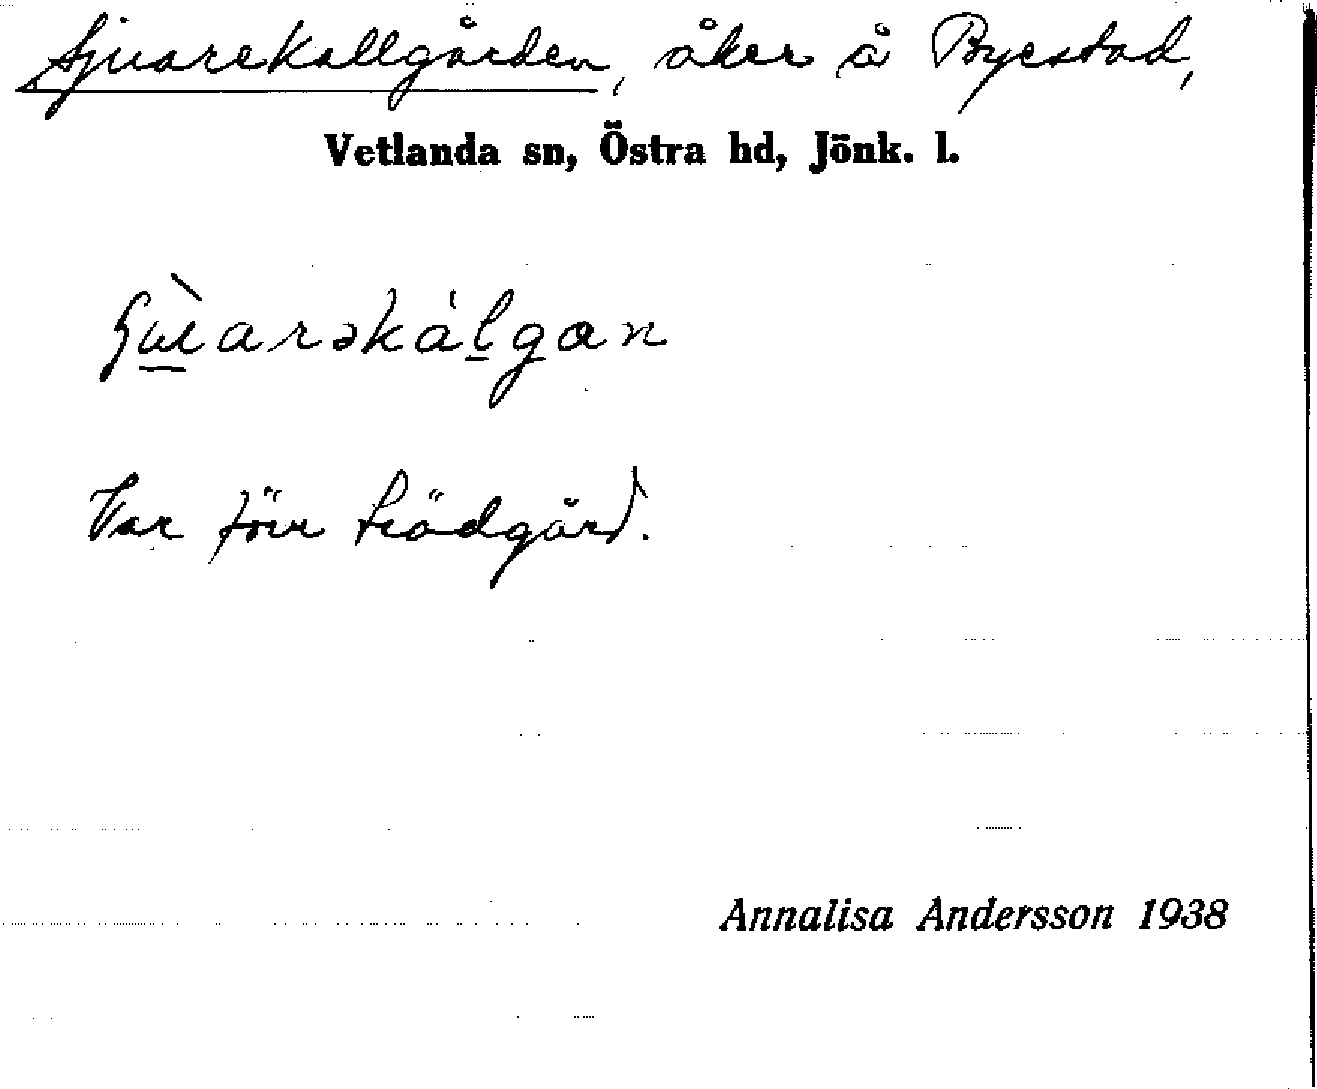 Sjuarekallgården, åker å Byestad,
Vetlanda sn, Östra hd, Jönk. l.
Var förr trädgård.
Annalisa Andersson 1938